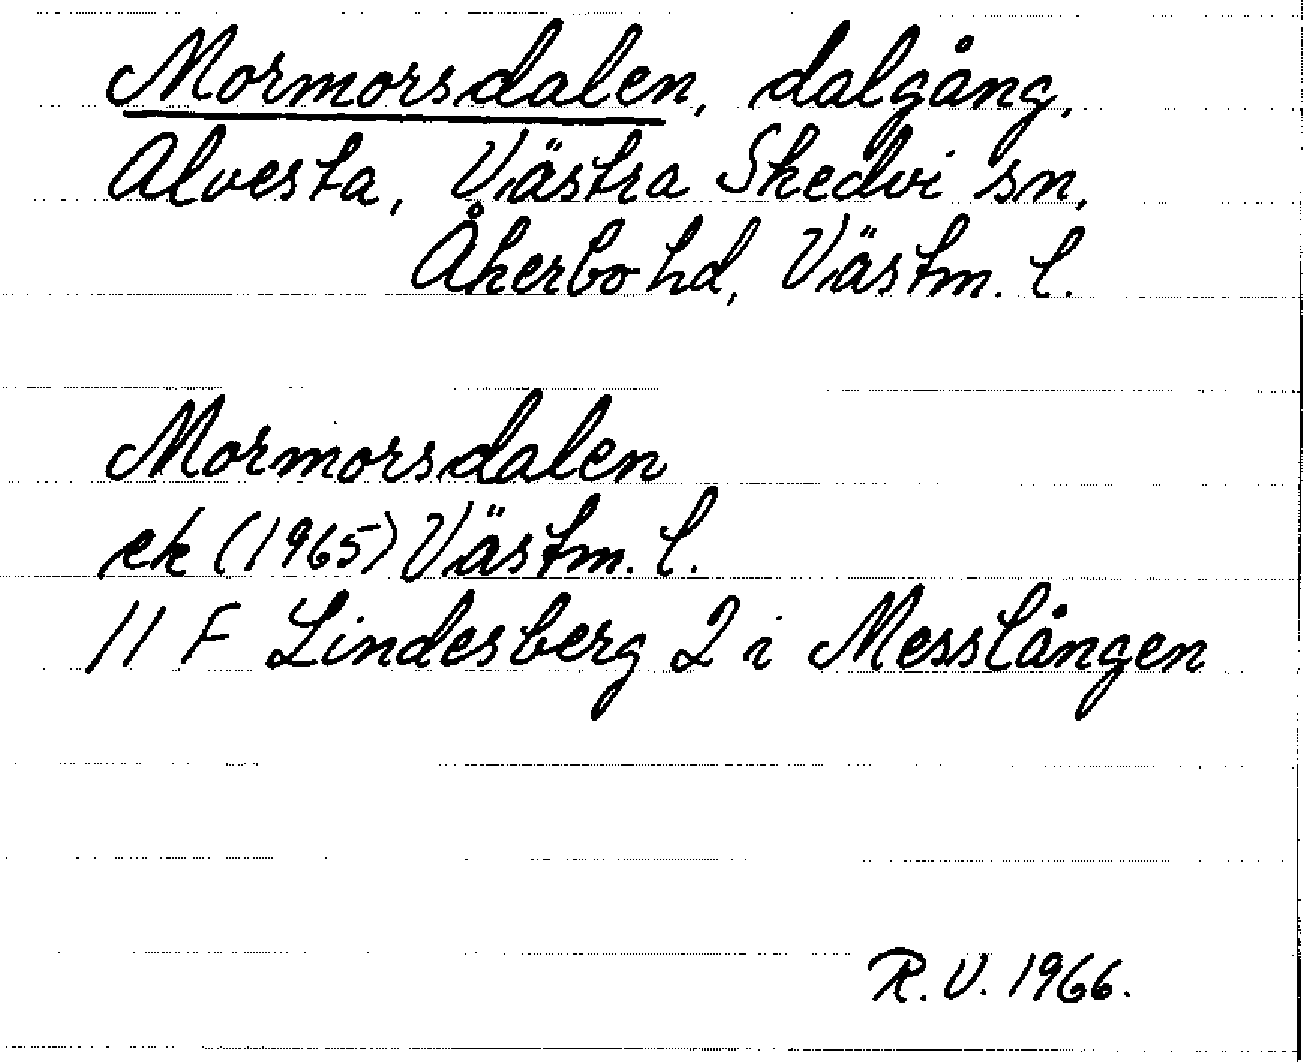 Mormorsdalen, dalgång,
Alvesta, Västra Skedvi sn,
Åkerbo hd, Västm. l.
Mormorsdalen
ek (1965) Västm. l.
11 F Lindesberg 2 i Messlången
R.V. 1966.